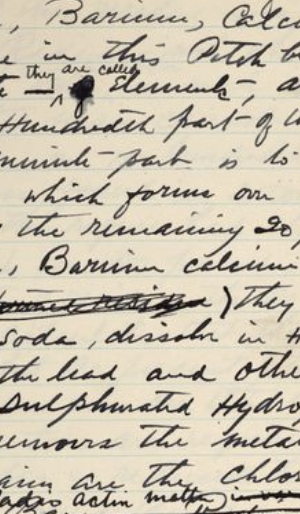 , Barium, Calc
in this Pitch b
they are called
Elements, a
Hundredth part of
minute part is to
which forms over
the remaining 20
, Barium calcium
) they
Soda, dissolve in H
the lead and othe
Sulphurated Hydro
removes the meta
are the chlor
actin matter